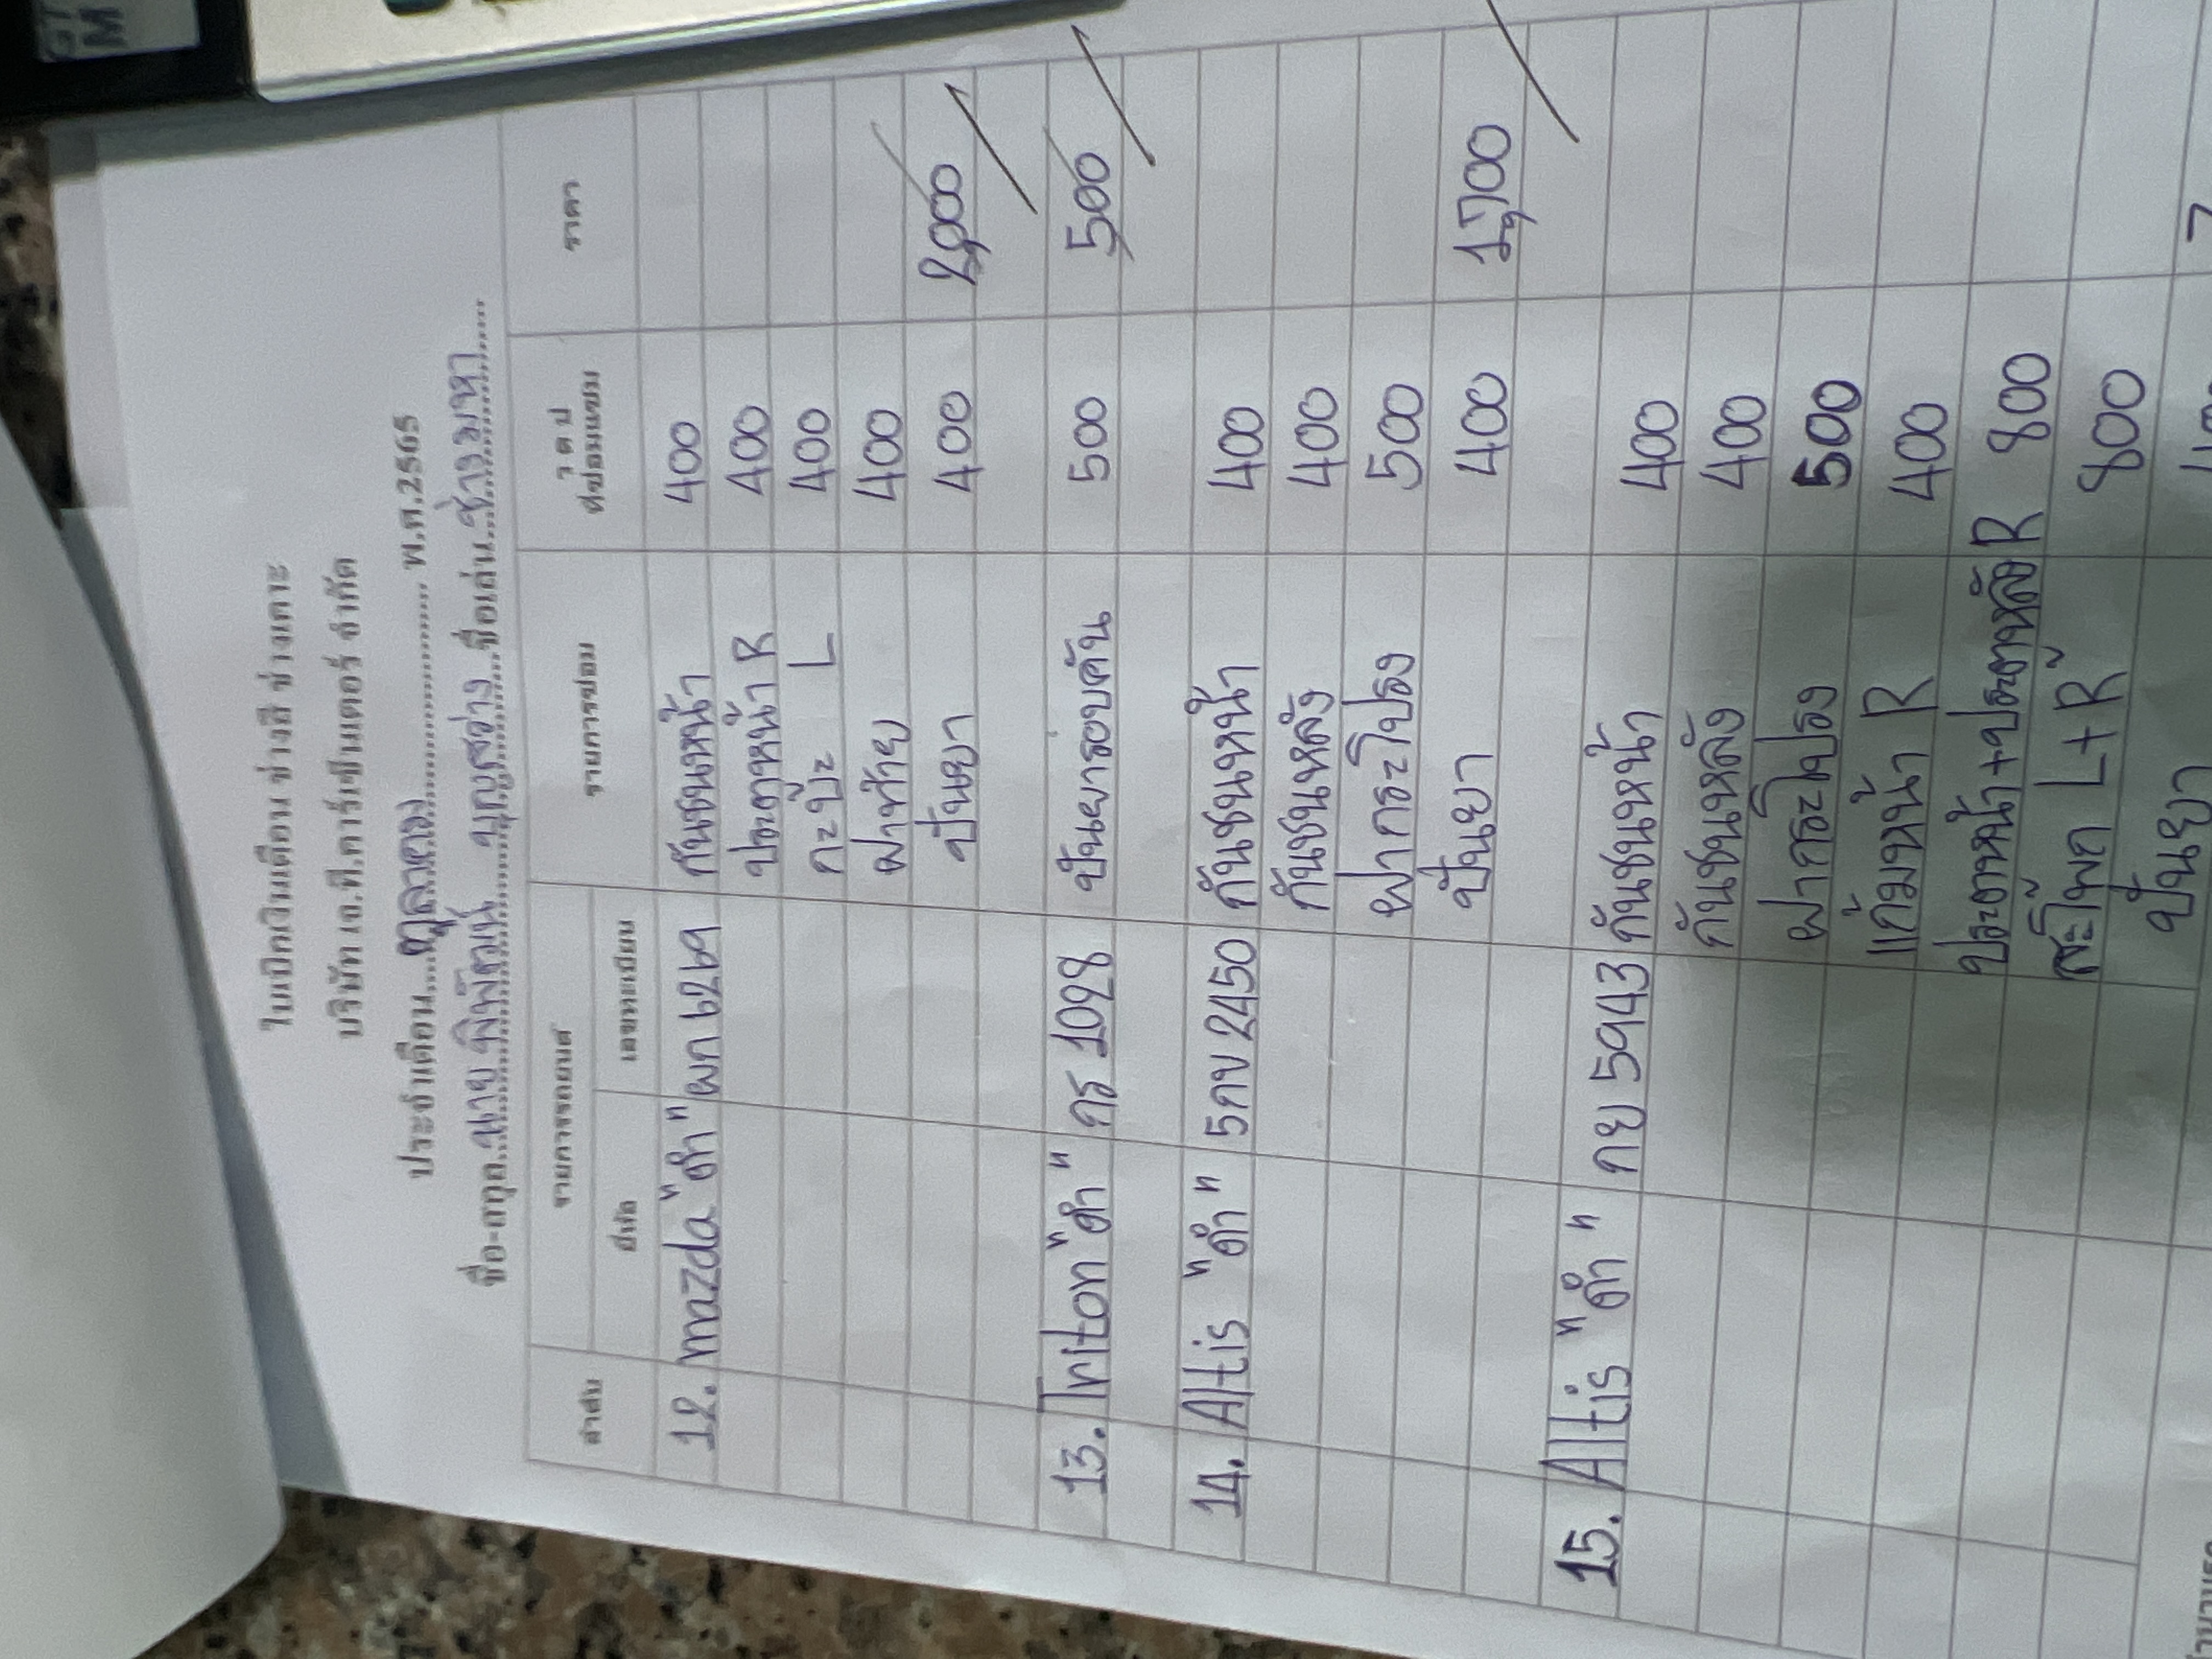 ใบเบิกเงินเดือน ช่างสี ช่างเคาะ
บริษัท เจ.ที.คาร์เซ็นเตอร์ จำกัด
ประจำเดือน...ตุลาคม............ พ.ศ.2565
ชื่อ-สกุล..นาย พิพัฒน์ บุญสว่าง...ชื่อเล่น..ช่างมหา......
ลำดับ รายการรถยนต์ รายการซ่อม ว ด ป ที่ซ่อมแซม ราคา
ยี่ห้อ เลขทะเบียน
12. mazda "ดำ" ผก 6269 กันชนหน้า 400
ประตูหน้า R 400
กะบะ L 400
ฝาท้าย 400
ปั่นยา 400 2,000
13. Triton "ดำ" กร 1098 ปั่นยารอบคัน 500 500
14. Altis "ดำ" 5กข 2450 กันชนหน้า 400
กันชนหลัง 400
ฝากระโปรง 500
ปั่นยา 400 1,700
15. Altis "ดำ" กย 5943 กันชนหน้า 400
กันชนหลัง 400
ฝากระโปรง 500
แก้มหน้า R 400
ประตูหน้า+ประตูหลัง R 800
สะโพก L+R 800
ปั่นยา